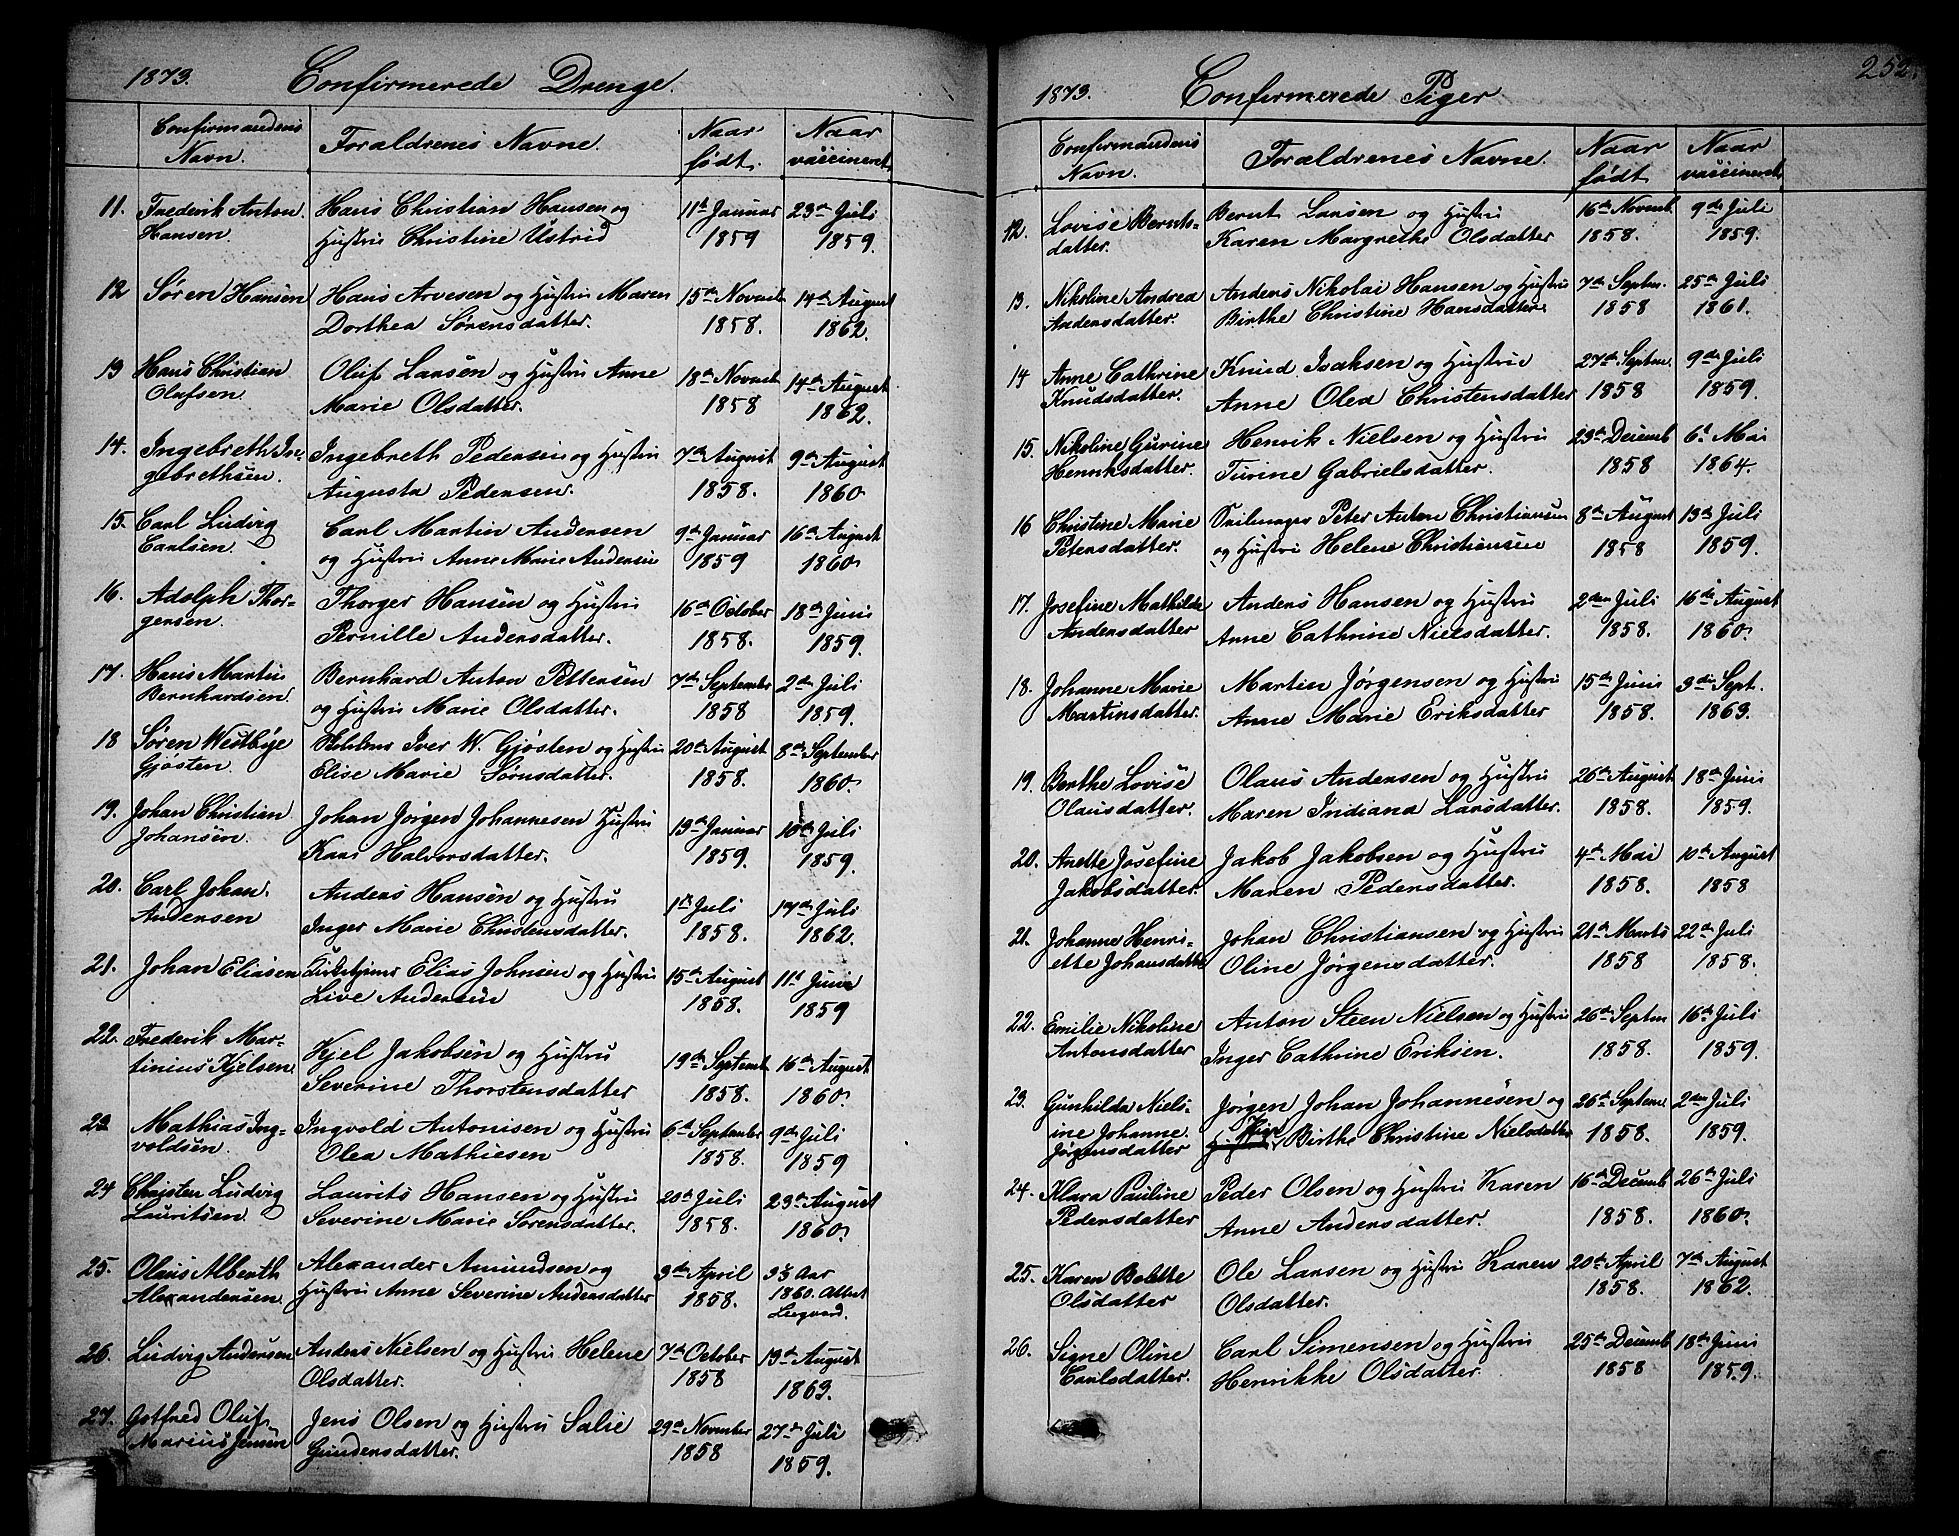 1873. Confirmerede Drenge.
Confirmandens Navn. Forældrenes Navne. Naar født. Naar vaccineret
11. Frederik Anton Hans Christian Hansen og 11te Januar 23de Juli
Hansen. Hustru Christine Ustrid 1859 1859.
12 Søren Hansen Hans Arvesen og Hustru Maren 15de Novemb 14de August
Dorthea Sørensdatter. 1858. 1862.
13 Hans Christian Oluf Larsen og Hustru Anne 18de Novemb 14de August
Olufsen. Marie Olsdatter. 1858 1862.
14. Ingebreth In- Ingebreth Pedersen og Hustru 7de August 9de August
gebrethsen. Augusta Pedersen. 1858. 1860.
15. Carl Ludvig Carl Martin Andersen 9de Januar 16de August
Carlsen. og Hustru Anne Marie Andersen 1859 1860.
16. Adolph Thor- Thorger Hansen og Hustru 16de October 18de Juni
gersen. Pernille Andersdatter. 1858. 1859.
17. Hans Martin Bernhard Anton Pettersen 7de September 2de Juli
Bernhardsen. og Hustru Marie Olsdatter. 1858 1859.
18 Søren Westbye Iver W. Gjøsten og Hustru 20de August 8de September
Gjøsten. Elise Marie Sørnsdatter. 1858. 1860.
19. Johan Christian Johan Jørgen Johannesen Hustru 13de Januar 10de Juli
Johansen. Kaas Halvorsdatter. 1859. 1859.
20. Carl Johan Anders Hansen og Hustru 1ste Juli 17de Juli
Andersen Inger Marie Christensdatter. 1858. 1862.
21. Johan Eliasen Kirketjener Elias Johnsen og Hustru 15de August 11te Juni
Live Andersen 1858. 1859
22. Frederik Mar- Kjel Jakobsen og Hustru 19de Septemb 16de August
tinius Kjelsen Severine Thorstensdatter 1858. 1860.
23. Mathias Ing- Ingvold Antonisen og Hustru 6te September 9de Juli
voldsen. Olea Mathiesen 1858. 1859
24 Christen Ludvig Laurits Hansen og Hustru 20de Juli 23de August
Lauritsen. Severine Marie Sørensdatter. 1858. 1860.
25. Olaus Alberth Alexander Amundsen og 3de April Aar
Alexandersen. Hustru Anne Severine Andersdatter 1858. 1860. Attest
26. Ludvig Andersen Anders Nielsen og Hustru Helene 7de October 13de August
Olsdatter. 1858 1863.
27. Gotfred Oluf Jens Olsen og Hustru Salie 29de November 27de Juli
Marius Jensen Gundersdatter. 1858 1859.
1873. Confirmerede Piger 252.
Confirmandens Navn. Forældrenes Navne. Naar født Naar vaccineret
12. Lovise Bernts- Bernt Larsen og Hustru 16de Novemb. 9de Juli
datter. Karen Margrethe Olsdatter 1858. 1859.
13. Nikoline Andrea Anders Nikolai Hansen og Hustru 7de Septem. 25de Juli
Andersdatter. Birthe Christine Hansdatter. 1858 1861.
14 Anne Cathrine Knud Isaksen og Hustru 27de Septem. 9de Juli
Knudsdatter. Anne Olea Christensdatter 1858 1859.
15. Nikoline Gurine Henrik Nielsen og Hustru 23de Decemb 6te Mai
Henriksdatter. Turine Gabrielsdatter. 1858 1864.
16 Christine Marie Seilmager Peter Anton Christiansen 8de August 13de Juli
Petersdatter. og Hustru Helene Christiansen 1858 1859.
17. Josefine Mathilde Anders Hansen og Hustru 2den Juli 16de August
Andersdatter Anne Cathrine Nielsdatter. 1858. 1860.
18. Johanne Marie Martin Jørgensen og Hustru 15de Juni 3die Sept.
Martinsdatter. Anne Marie Eriksdatter 1858. 1863.
19. Berthe Lovise Olaus Andersen og Hustru 26de August 18de Juni
Olausdatter. Maren Indiana Larsdatter. 1858. 1859.
20. Anette Josefine Jakob Jakobsen og Hustru 4de Mai 10de August
Jakobsdatter. Maren Pedersdatter. 1858. 1858
21. Johanne Henri- Johan Christiansen og Hustru 21de Marts 22de Juli
ette Johansdatter Oline Jørgensdatter. 1858 1858.
22. Emilie Nikoline Anton Steen Nielsen og Hustru 26de Septem 16de Juli
Antonsdatter Inger Cathrine Eriksen. 1858. 1859.
23. Gunhilda Niels- Jørgen Johan Johannesen og 26de Septem. 2den Juli
ine Johanne. Pige Birthe Christine Nielsdatter 1858. 1859.
Jørgensdatter
24. Klara Pauline Peder Olsen og Hustru Karen 16de Decemb 26de Juli
Pedersdatter Anne Andersdatter. 1858. 1860.
25. Karen Bolette Ole Larsen og Hustru Karen 20de April 7de August
Olsdatter Olsdatter. 1858. 1862.
26. Signe Oline Carl Simensen og Hustru 25de Decemb 18de Juni
Carlsdatter. Henrikke Olsdatter. 1858 1859.